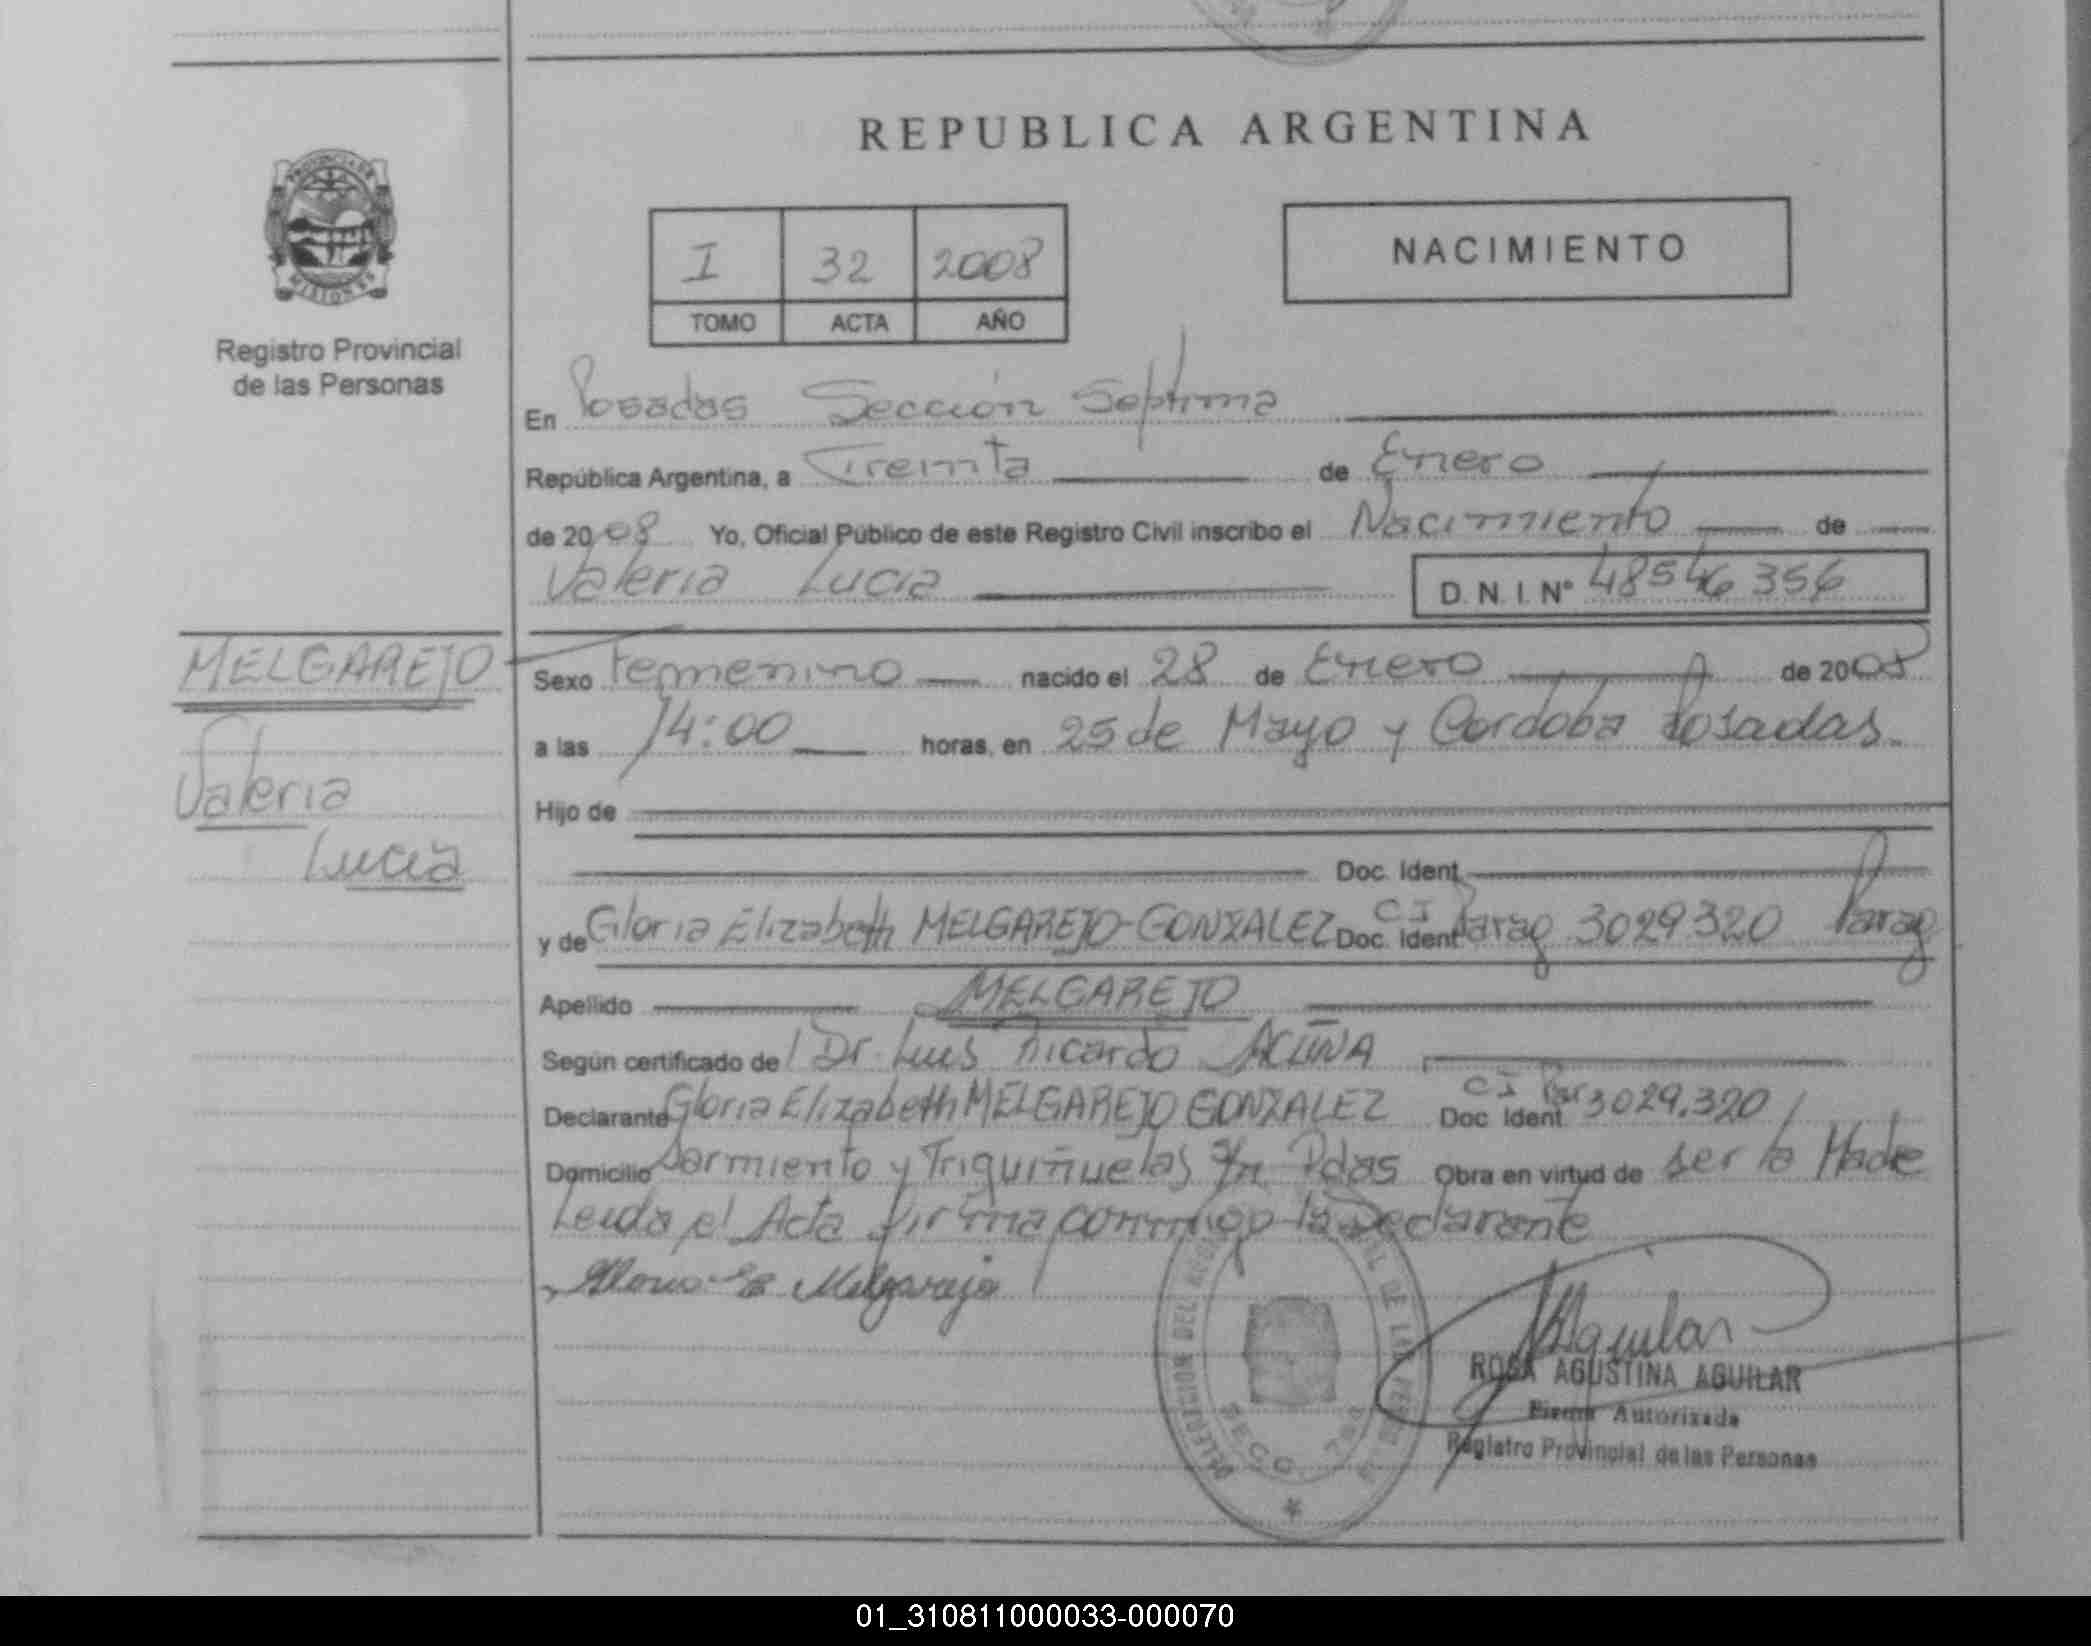 REPUBLICA ARGENTINA
PROVINCIA DE MISIONES
Registro Provincial
de las Personas
I 32 2008
TOMO ACTA AÑO
NACIMIENTO
En Posadas Sección Septima
República Argentina, a Treinta de Enero
de 2008 Yo, Oficial Público de este Registro Civil inscribo el Nacimiento de
Valeria Lucia D.N.I. Nº 48546356
MELGAREJO
Valeria
Lucia
Sexo Femenino nacido el 28 de Enero de 2008
a las 14:00 horas, en 25 de Mayo y Cordoba Posadas.
Hijo de
Doc. Ident
y de Gloria Elizabeth MELGAREJO-GONZALEZ Doc. Ident CI Parag 3029320 Parag
Apellido MELGAREJO
Según certificado de Dr. Luis Ricardo ACUÑA
Declarante Gloria Elizabeth MELGAREJO GONZALEZ Doc Ident CI Par 3029.320
Domicilio Sarmiento y Triquiñuelas s/n Pdas Obra en virtud de ser la Madre
Leida el Acta firma conmigo la Declarante
Gloria E Melgarejo
Aguilar
ROSA AGUSTINA AGUILAR
Firma Autorizada
Registro Provincial de las Personas
SECC. 7ma
01_310811000033-000070